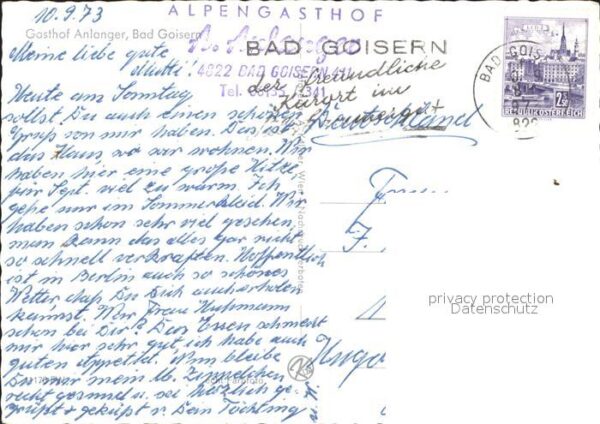 10.9.73
ALPENGASTHOF
Gasthof Anlanger, Bad Goisern
A. Anlanger
BAD GOISERN
4822 BAD GOISERN
Tel.
der freundliche
Kurort im
Meine liebe gute
Mutti!
Heute am Sonntag
sollst Du auch einen schönen
Gruß von mir haben. Das ist
das Haus, wo wir wohnen. Wir
haben hier eine große Hitze
für Sept. viel zu warm. Ich
gehe nur im Sommerkleid. Wir
haben schon sehr viel gesehen,
man kann das alles gar nicht
so schnell verkraften. Hoffentlich
ist in Berlin auch so schönes
Wetter, daß Du Dich auch erholen
kannst. War Frau Huhmann
schon bei Dir? Das Essen schmeckt
mir hier sehr gut ich habe auch
guten Appetit. Nun bleibe
Du nur mein lb.
recht gesund u. sei herzlich ge-
grüßt + geküßt v. Dein Töchting
Deutschland
BAD GOIS
REPUBLIK ÖSTERREICH
privacy protection
Datenschutz